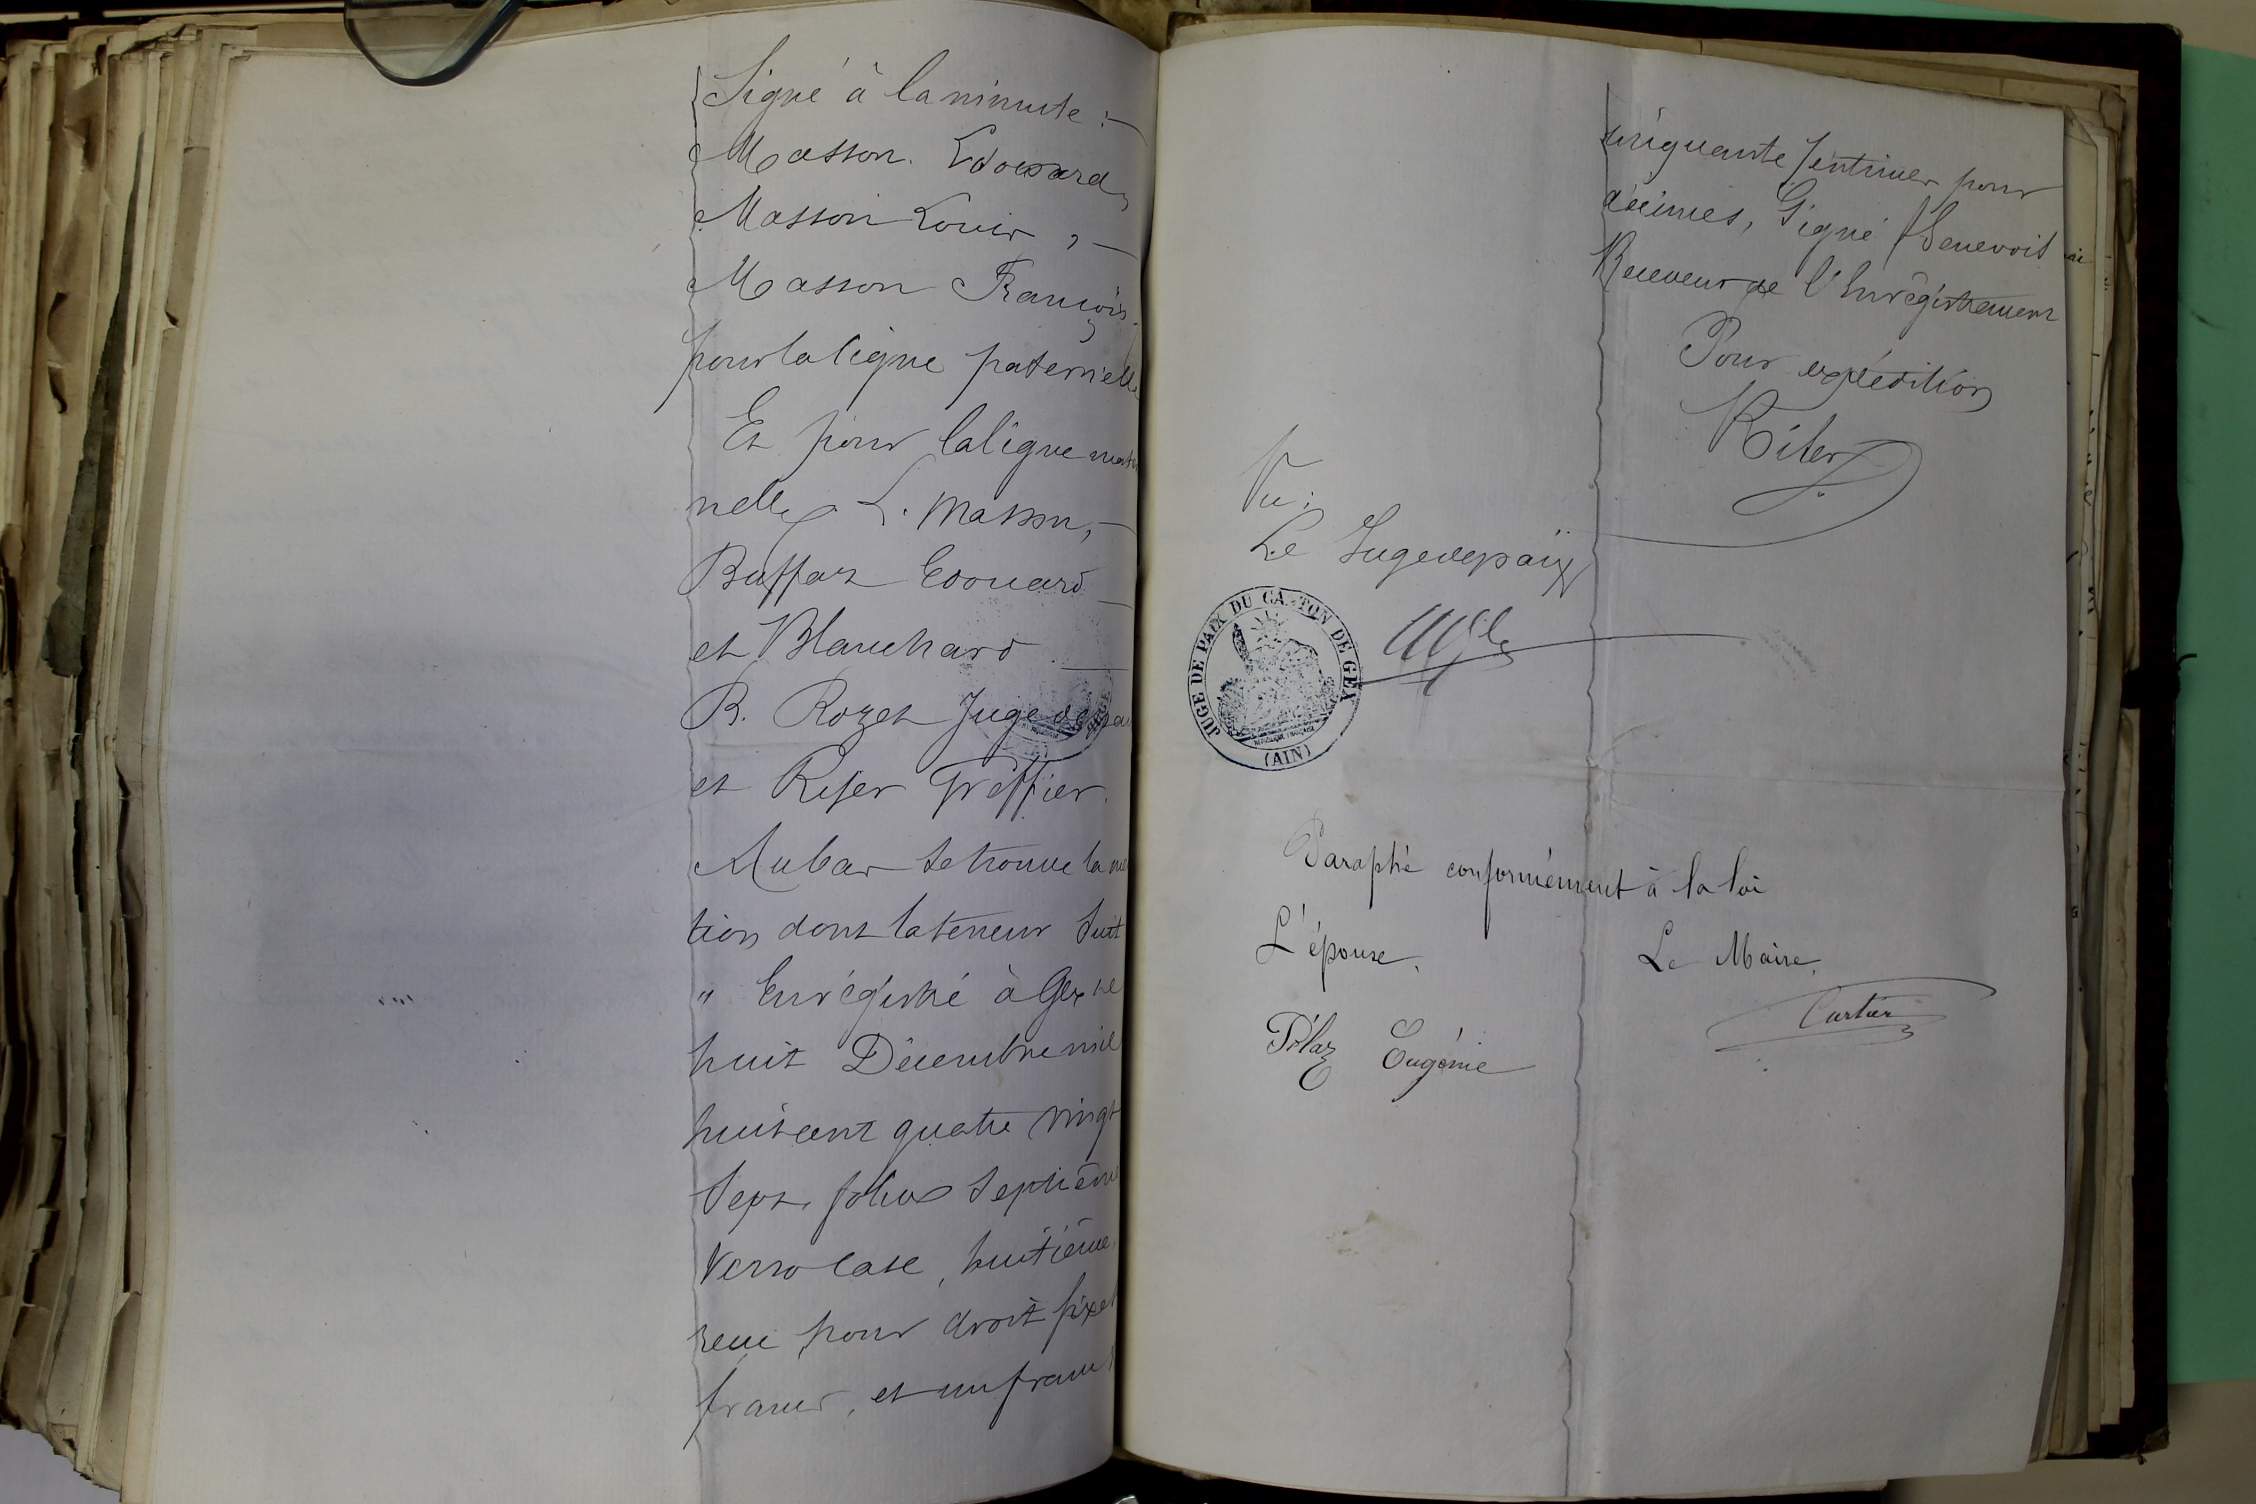 Signé à la minute :
Masson Edouard,
Masson Louis,
Masson François
pour la ligne paternelle
Et pour la ligne mater
nelle L. Masson,
Buffaz Edouard
et Blanchard
R. Rozet Juge de pai
et Riser Greffier.
Au bas se trouve la me
tion dont la teneur suit
" Enrégistré à Gex le
huit Décembre mil
huit cent quatre vingt
sept, folio septième
verso case, huitième,
reçu pour droit fixe
francs, et un franc
cinquante centimes pour
décimes, Signé
Receveur de l'Enrégistrement
Pour expédition
Riser
Vu :
Le Juge de paix
JUGE DE PAIX DU CANTON DE GEX
(AIN)
Paraphé conformément à la loi
L'épouse, Le Maire,
Pélaz Eugénie Cartier